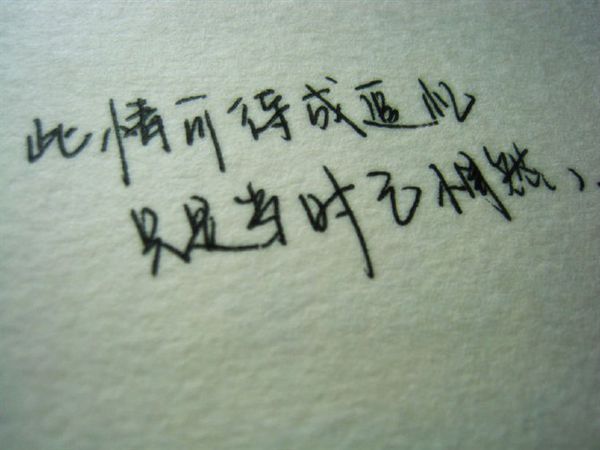 此情可待成追忆
只是当时已惘然、